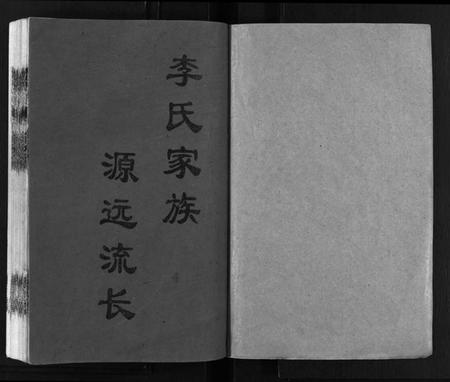 李氏家族
源远流长